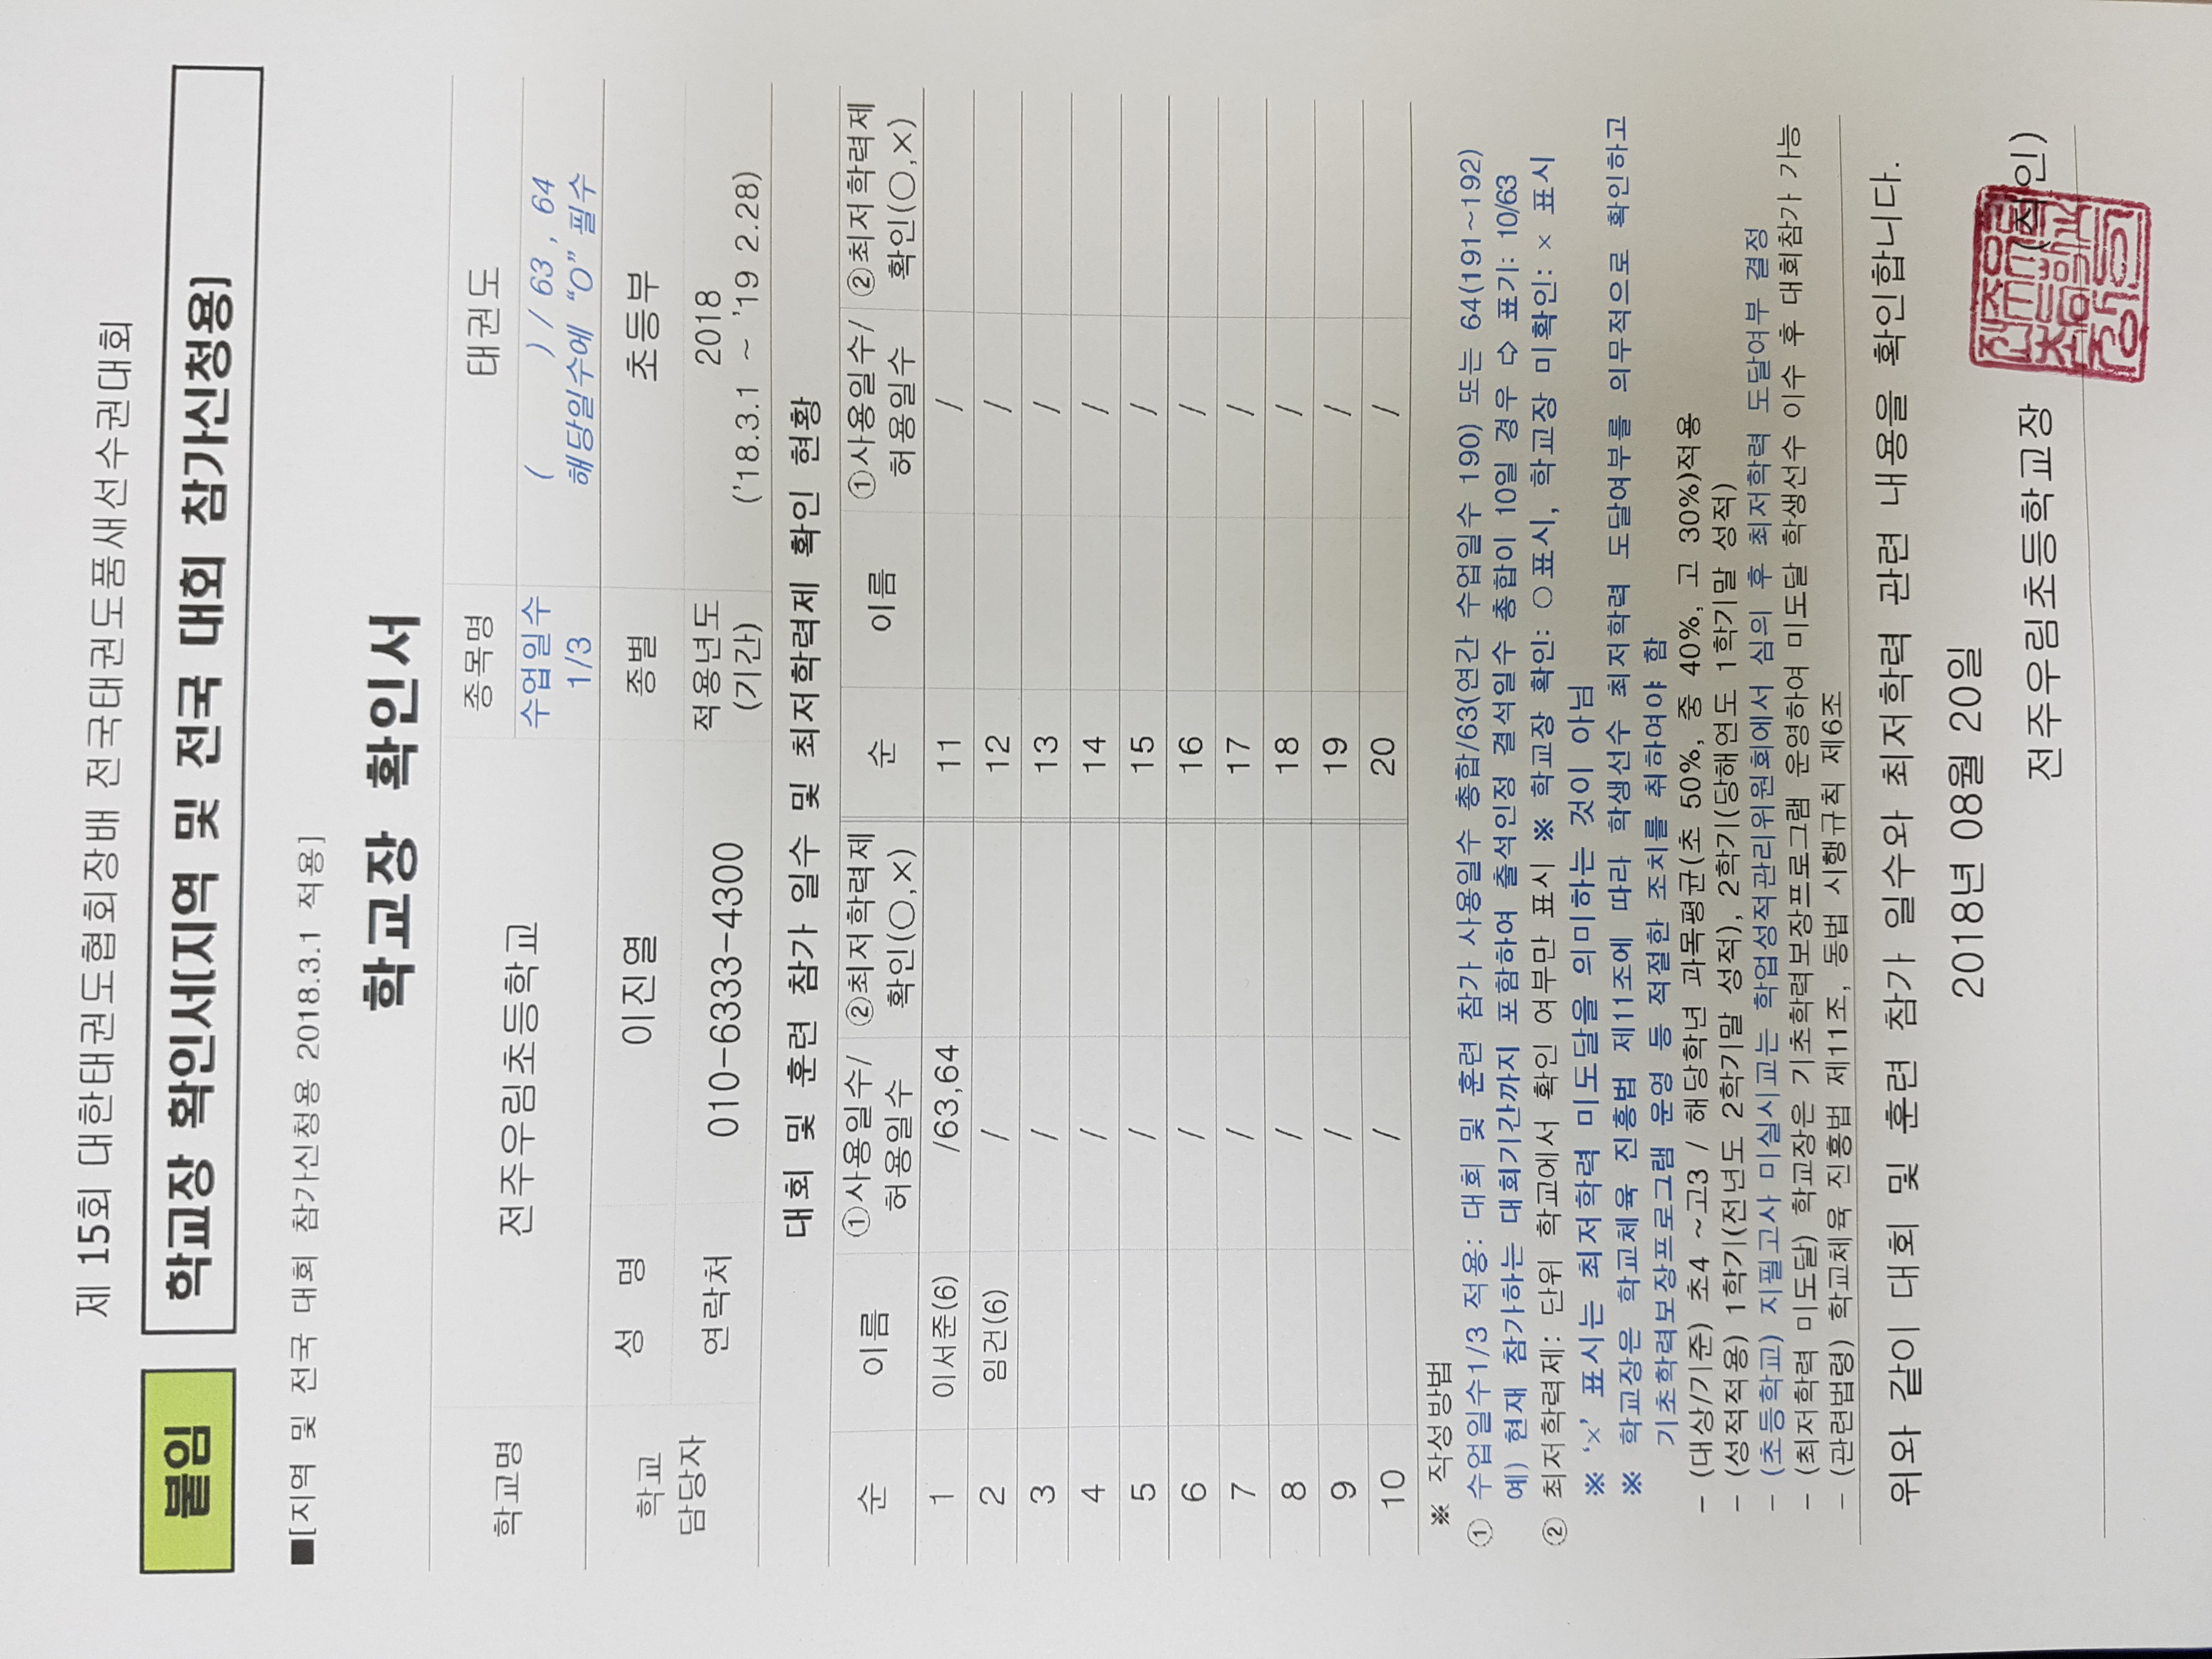 제 15회 대한태권도협회장배 전국태권도품새선수권대회
붙임 학교장 확인서(지역 및 전국 대회 참가신청용)
■[지역 및 전국 대회 참가신청용 2018.3.1 적용]
학교장 확인서
학교명 전주우림초등학교 종목명 태권도
수업일수 1/3 ( ) / 63 , 64
해당일수에 “O” 필수
학교 담당자 성 명 이진열 종별 초등부
연락처 010-6333-4300 적용년도 (기간) 2018
('18.3.1 ~ '19 2.28)
대회 및 훈련 참가 일수 및 최저학력제 확인 현황
순 이름 ①사용일수/허용일수 ②최저학력제 확인(○,×) 순 이름 ①사용일수/허용일수 ②최저학력제 확인(○,×)
1 이서준(6) /63,64 11 /
2 임건(6) / 12 /
3 / 13 /
4 / 14 /
5 / 15 /
6 / 16 /
7 / 17 /
8 / 18 /
9 / 19 /
10 / 20 /
※ 작성방법
① 수업일수1/3 적용: 대회 및 훈련 참가 사용일수 총합/63(연간 수업일수 190) 또는 64(191~192)
예) 현재 참가하는 대회기간까지 포함하여 출석인정 결석일수 총합이 10일 경우 ⇨ 표기: 10/63
② 최저학력제: 단위 학교에서 확인 여부만 표시 ※ 학교장 확인: ○표시, 학교장 미확인: × 표시
※ ‘×’ 표시는 최저학력 미도달을 의미하는 것이 아님
※ 학교장은 학교체육 진흥법 제11조에 따라 학생선수 최저학력 도달여부를 의무적으로 확인하고
기초학력보장프로그램 운영 등 적절한 조치를 취하여야 함
- (대상/기준) 초4 ~고3 / 해당학년 과목평균(초 50%, 중 40%, 고 30%)적용
- (성적적용) 1학기(전년도 2학기말 성적), 2학기(당해연도 1학기말 성적)
- (초등학교) 지필고사 미실시교는 학업성적관리위원회에서 심의 후 최저학력 도달여부 결정
- (최저학력 미도달) 학교장은 기초학력보장프로그램 운영하여 미도달 학생선수 이수 후 대회참가 가능
- (관련법령) 학교체육 진흥법 제11조, 동법 시행규칙 제6조
위와 같이 대회 및 훈련 참가 일수와 최저학력 관련 내용을 확인합니다.
2018년 08월 20일
전주우림초등학교장 (직인)